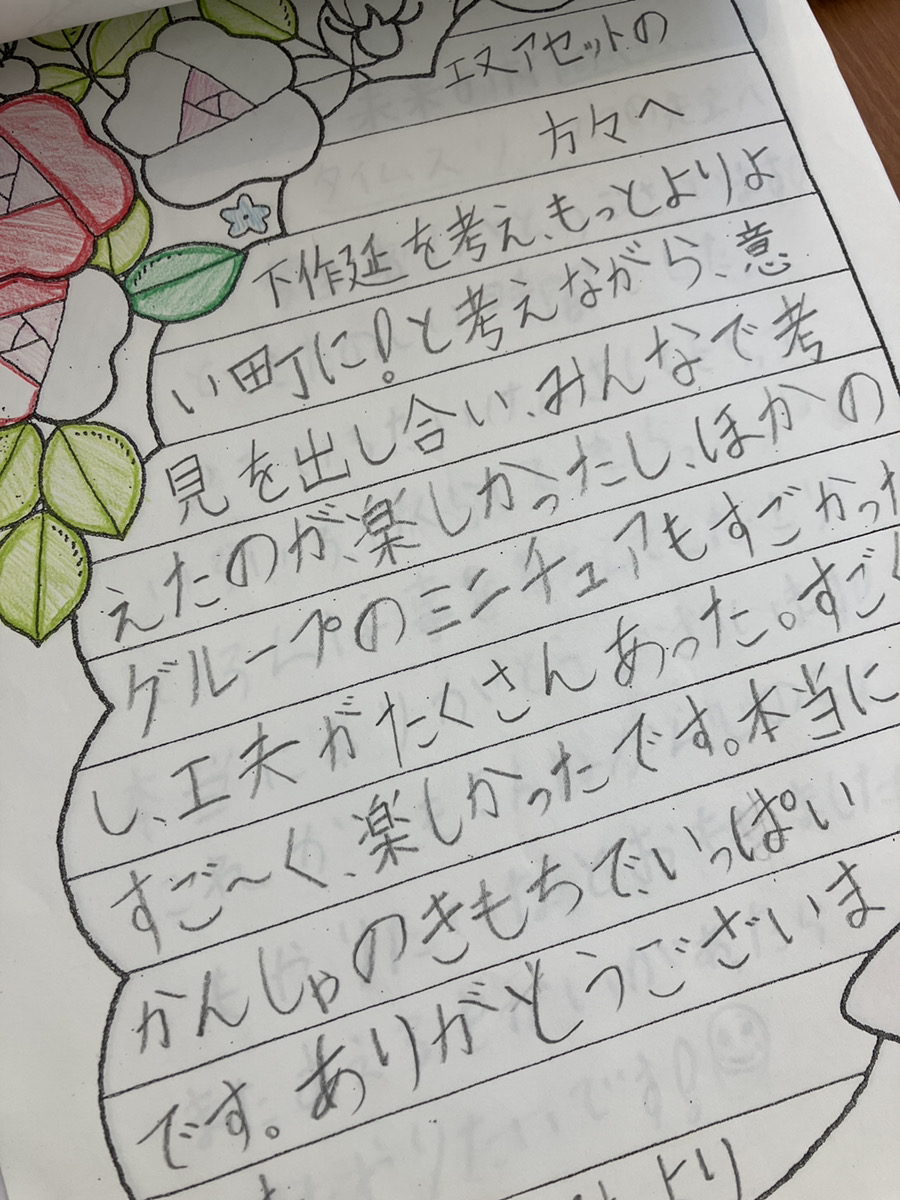 エヌアセットの
方々へ
下作延を考え、もっとよりよ
い町に!と考えながら、意
見を出し合い、みんなで考
えたのが、楽しかったし、ほかの
グループのミニチュアもすごかった
し、工夫がたくさんあった。すごく
すご〜く、楽しかったです。本当に
かんしゃのきもちで、いっぱい
です。ありがとうございま
より